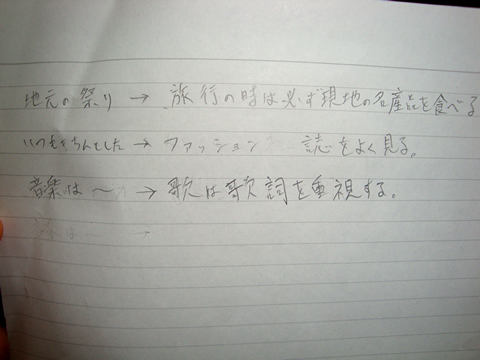 地元の祭り → 旅行の時は必ず現地の名産品を食べる
いつもきちんとした → ファッション 誌をよく見る。
音楽は〜 → 歌は歌詞を重視する。
は〜 →